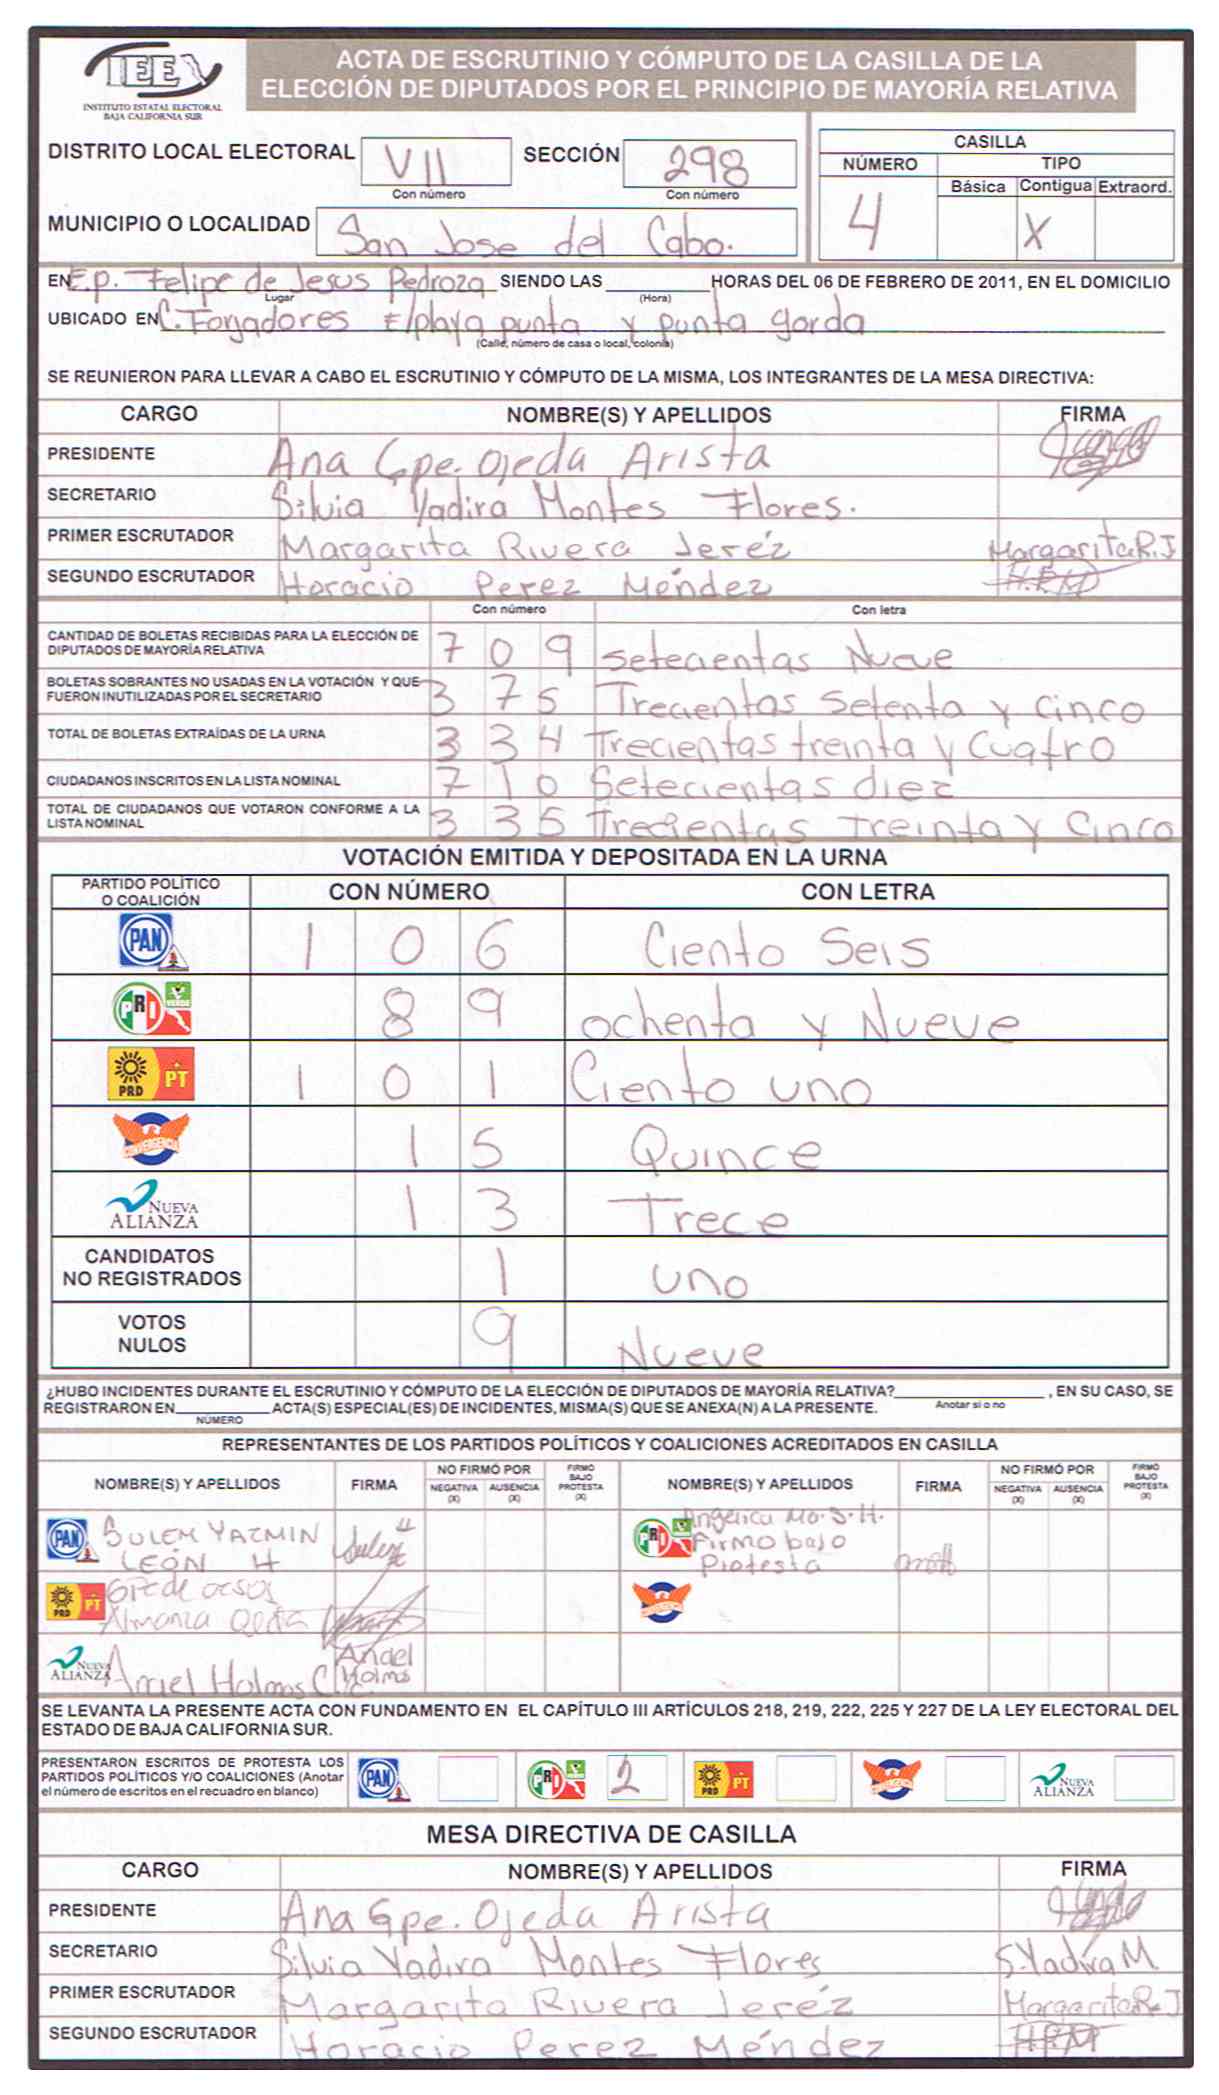 IEE
INSTITUTO ESTATAL ELECTORAL
BAJA CALIFORNIA SUR
ACTA DE ESCRUTINIO Y CÓMPUTO DE LA CASILLA DE LA
ELECCIÓN DE DIPUTADOS POR EL PRINCIPIO DE MAYORÍA RELATIVA
DISTRITO LOCAL ELECTORAL VII SECCIÓN 298
Con número Con número
CASILLA
NÚMERO TIPO
Básica Contigua Extraord.
4 X
MUNICIPIO O LOCALIDAD San Jose del Cabo.
EN E.p. Felipe de Jesus Pedroza SIENDO LAS HORAS DEL 06 DE FEBRERO DE 2011, EN EL DOMICILIO
Lugar (Hora)
UBICADO EN C. Forjadores E/playa punta y punta gorda
(Calle, número de casa o local, colonia)
SE REUNIERON PARA LLEVAR A CABO EL ESCRUTINIO Y CÓMPUTO DE LA MISMA, LOS INTEGRANTES DE LA MESA DIRECTIVA:
CARGO NOMBRE(S) Y APELLIDOS FIRMA
PRESIDENTE Ana Gpe. Ojeda Arista
SECRETARIO Silvia Yadira Montes Flores.
PRIMER ESCRUTADOR Margarita Rivera Jeréz Margarita R.J
SEGUNDO ESCRUTADOR Horacio Perez Méndez H.P.M
Con número Con letra
CANTIDAD DE BOLETAS RECIBIDAS PARA LA ELECCIÓN DE
DIPUTADOS DE MAYORÍA RELATIVA 7 0 9 Setecientas Nueve
BOLETAS SOBRANTES NO USADAS EN LA VOTACIÓN Y QUE
FUERON INUTILIZADAS POR EL SECRETARIO 3 7 5 Trecientas Setenta y Cinco
TOTAL DE BOLETAS EXTRAÍDAS DE LA URNA 3 3 4 Trecientas treinta y Cuatro
CIUDADANOS INSCRITOS EN LA LISTA NOMINAL 7 1 0 Setecientas diez
TOTAL DE CIUDADANOS QUE VOTARON CONFORME A LA
LISTA NOMINAL 3 3 5 Trecientas Treinta y Cinco
VOTACIÓN EMITIDA Y DEPOSITADA EN LA URNA
PARTIDO POLÍTICO
O COALICIÓN CON NÚMERO CON LETRA
PAN 1 0 6 Ciento Seis
PRI VERDE 8 9 ochenta y Nueve
PRD PT 1 0 1 Ciento uno
CONVERGENCIA 1 5 Quince
NUEVA ALIANZA 1 3 Trece
CANDIDATOS
NO REGISTRADOS 1 uno
VOTOS
NULOS 9 Nueve
¿HUBO INCIDENTES DURANTE EL ESCRUTINIO Y CÓMPUTO DE LA ELECCIÓN DE DIPUTADOS DE MAYORÍA RELATIVA? , EN SU CASO, SE
Anotar si o no
REGISTRARON EN ACTA(S) ESPECIAL(ES) DE INCIDENTES, MISMA(S) QUE SE ANEXA(N) A LA PRESENTE.
NÚMERO
REPRESENTANTES DE LOS PARTIDOS POLÍTICOS Y COALICIONES ACREDITADOS EN CASILLA
NOMBRE(S) Y APELLIDOS FIRMA NO FIRMÓ POR NEGATIVA (X) AUSENCIA (X) FIRMÓ BAJO PROTESTA (X) NOMBRE(S) Y APELLIDOS FIRMA NO FIRMÓ POR NEGATIVA (X) AUSENCIA (X) FIRMÓ BAJO PROTESTA (X)
PAN SULEM YAZMIN
LEÓN H
PRI Angelica Ma. S. H.
Firmo bajo
Protesta
PRD PT
Almanza
CONVERGENCIA
NUEVA ALIANZA Holmos C.
Holmos
SE LEVANTA LA PRESENTE ACTA CON FUNDAMENTO EN EL CAPÍTULO III ARTÍCULOS 218, 219, 222, 225 Y 227 DE LA LEY ELECTORAL DEL
ESTADO DE BAJA CALIFORNIA SUR.
PRESENTARON ESCRITOS DE PROTESTA LOS
PARTIDOS POLÍTICOS Y/O COALICIONES (Anotar
el número de escritos en el recuadro en blanco)
PAN PRI 2 PRD PT CONVERGENCIA NUEVA ALIANZA
MESA DIRECTIVA DE CASILLA
CARGO NOMBRE(S) Y APELLIDOS FIRMA
PRESIDENTE Ana Gpe. Ojeda Arista
SECRETARIO Silvia Yadira Montes Flores S. Yadira M
PRIMER ESCRUTADOR Margarita Rivera Jeréz Margarita R.J
SEGUNDO ESCRUTADOR Horacio Perez Méndez H.P.M